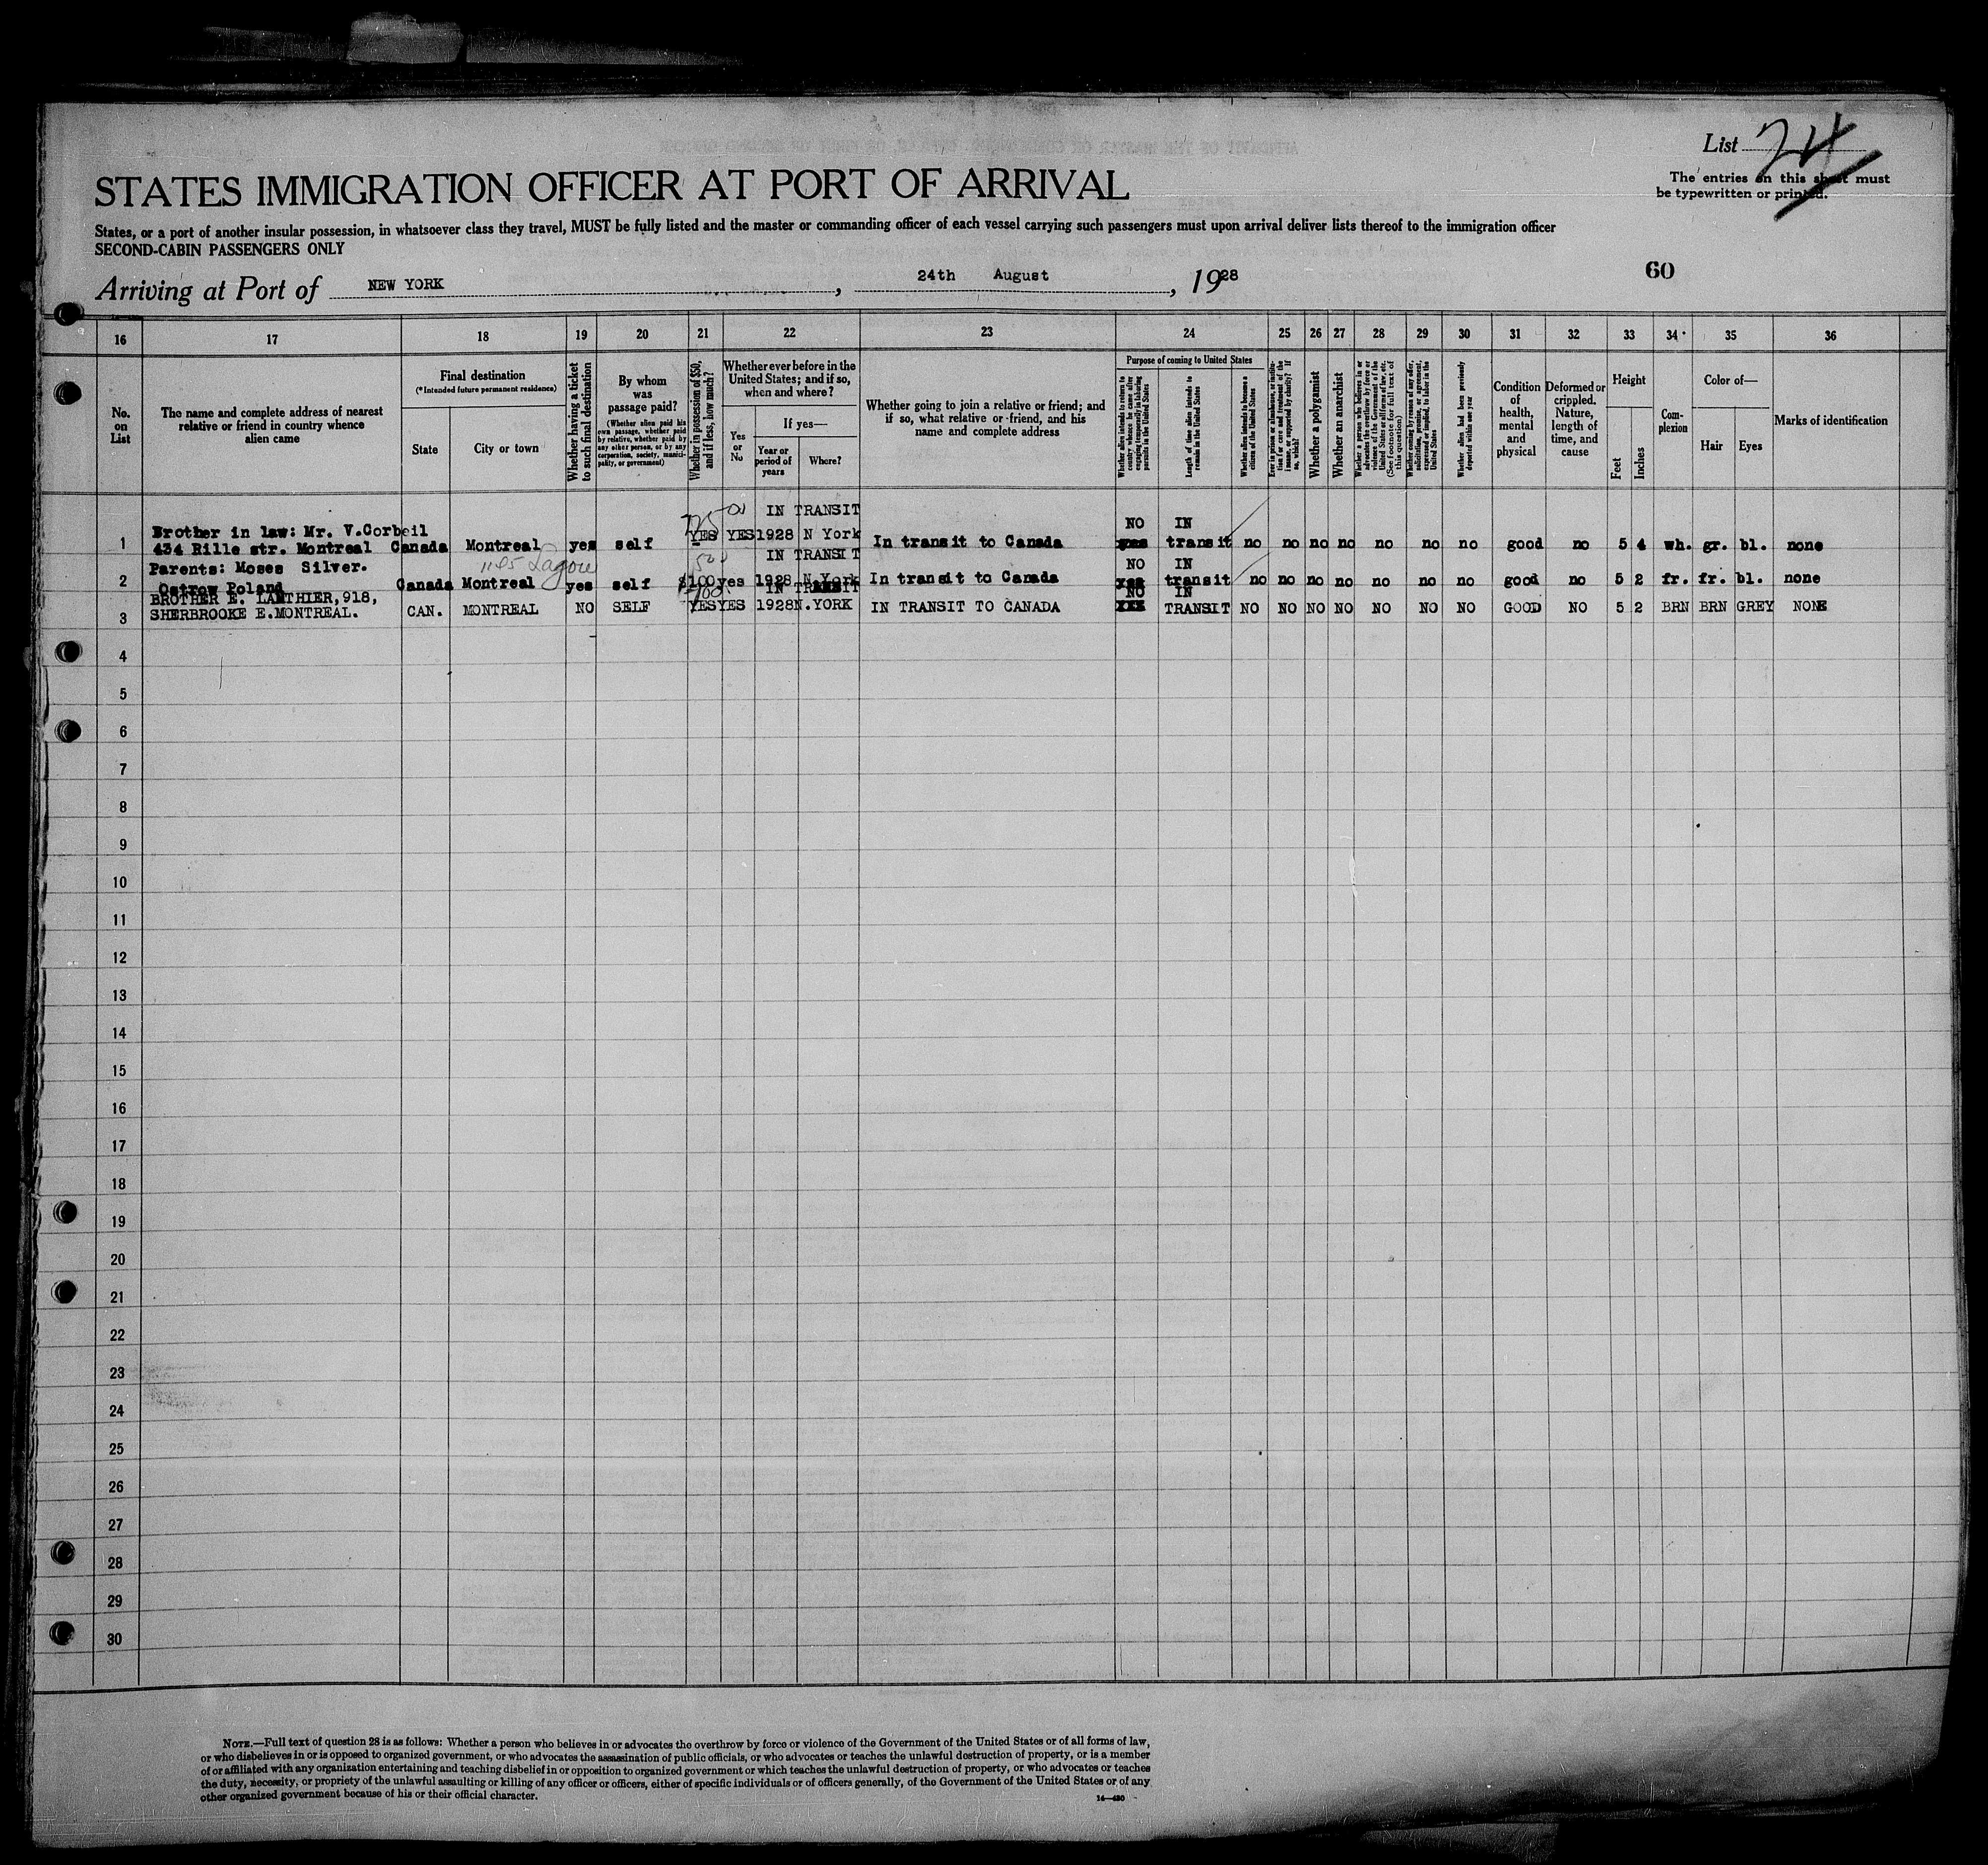 List 24
The entries on this sheet must
be typewritten or printed.
STATES IMMIGRATION OFFICER AT PORT OF ARRIVAL
States, or a port of another insular possession, in whatsoever class they travel, MUST be fully listed and the master or commanding officer of each vessel carrying such passengers must upon arrival deliver lists thereof to the immigration officer
SECOND-CABIN PASSENGERS ONLY
60
Arriving at Port of NEW YORK, 24th August, 1928
16 17 18 19 20 21 22 23 24 25 26 27 28 29 30 31 32 33 34 35 36
No. on List
The name and complete address of nearest
relative or friend in country whence
alien came
Final destination
(*Intended future permanent residence)
State
City or town
Whether having a ticket
to such final destination
By whom
was
passage paid?
(Whether alien paid his
own passage, whether paid
by relative, whether paid by
any other person, or by any
corporation, society, munici-
pality, or government)
Whether in possession of $50,
and if less, how much?
Whether ever before in the
United States; and if so,
when and where?
Yes
or
No
If yes—
Year or
period of
years
Where?
Whether going to join a relative or friend; and
if so, what relative or friend, and his
name and complete address
Purpose of coming to United States
Whether alien intends to return to
country whence he came after
engaging temporarily in laboring
pursuits in the United States
Length of time alien intends to
remain in the United States
Whether alien intends to become a
citizen of the United States
Ever in prison or almshouse, or institu-
tion for care and treatment of the
insane, or supported by charity? If
so, which?
Whether a polygamist
Whether an anarchist
Whether a person who believes in or
advocates the overthrow by force or
violence of the Government of the
United States or all forms of law, etc.
(See footnote for full text of
this question)
Whether coming by reason of any offer,
solicitation, promise, or agreement,
expressed or implied, to labor in the
United States
Whether alien had been previously
deported within one year
Condition
of
health,
mental
and
physical
Deformed or
crippled.
Nature,
length of
time, and
cause
Height
Feet
Inches
Com-
plexion
Color of—
Hair
Eyes
Marks of identification
IN TRANSIT
NO IN
Brother in law: Mr. V.Corbeil
1 434 Rille str. Montreal Canada Montreal yes self YES YES 1928 N York In transit to Canada yes transit no no no no no no no good no 5 4 wh. gr. bl. none
IN TRANSIT
NO IN
Parents: Moses Silver.
2 Ostrow Poland Canada Montreal yes self $100 yes 1928 N.York In transit to Canada yes transit no no no no no no no good no 5 2 fr. fr. bl. none
IN TRANSIT
NO IN
BROTHER E. LANTHIER,918,
3 SHERBROOKE E.MONTREAL. CAN. MONTREAL NO SELF YES YES 1928 N.YORK IN TRANSIT TO CANADA TRANSIT NO NO NO NO NO NO NO GOOD NO 5 2 BRN BRN GREY NONE
4
5
6
7
8
9
10
11
12
13
14
15
16
17
18
19
20
21
22
23
24
25
26
27
28
29
30
NOTE.—Full text of question 28 is as follows: Whether a person who believes in or advocates the overthrow by force or violence of the Government of the United States or of all forms of law,
or who disbelieves in or is opposed to organized government, or who advocates the assassination of public officials, or who advocates or teaches the unlawful destruction of property, or is a member
of or affiliated with any organization entertaining and teaching disbelief in or opposition to organized government or which teaches the unlawful destruction of property, or who advocates or teaches
the duty, necessity, or propriety of the unlawful assaulting or killing of any officer or officers, either of specific individuals or of officers generally, of the Government of the United States or of any
other organized government because of his or their official character.
14—430